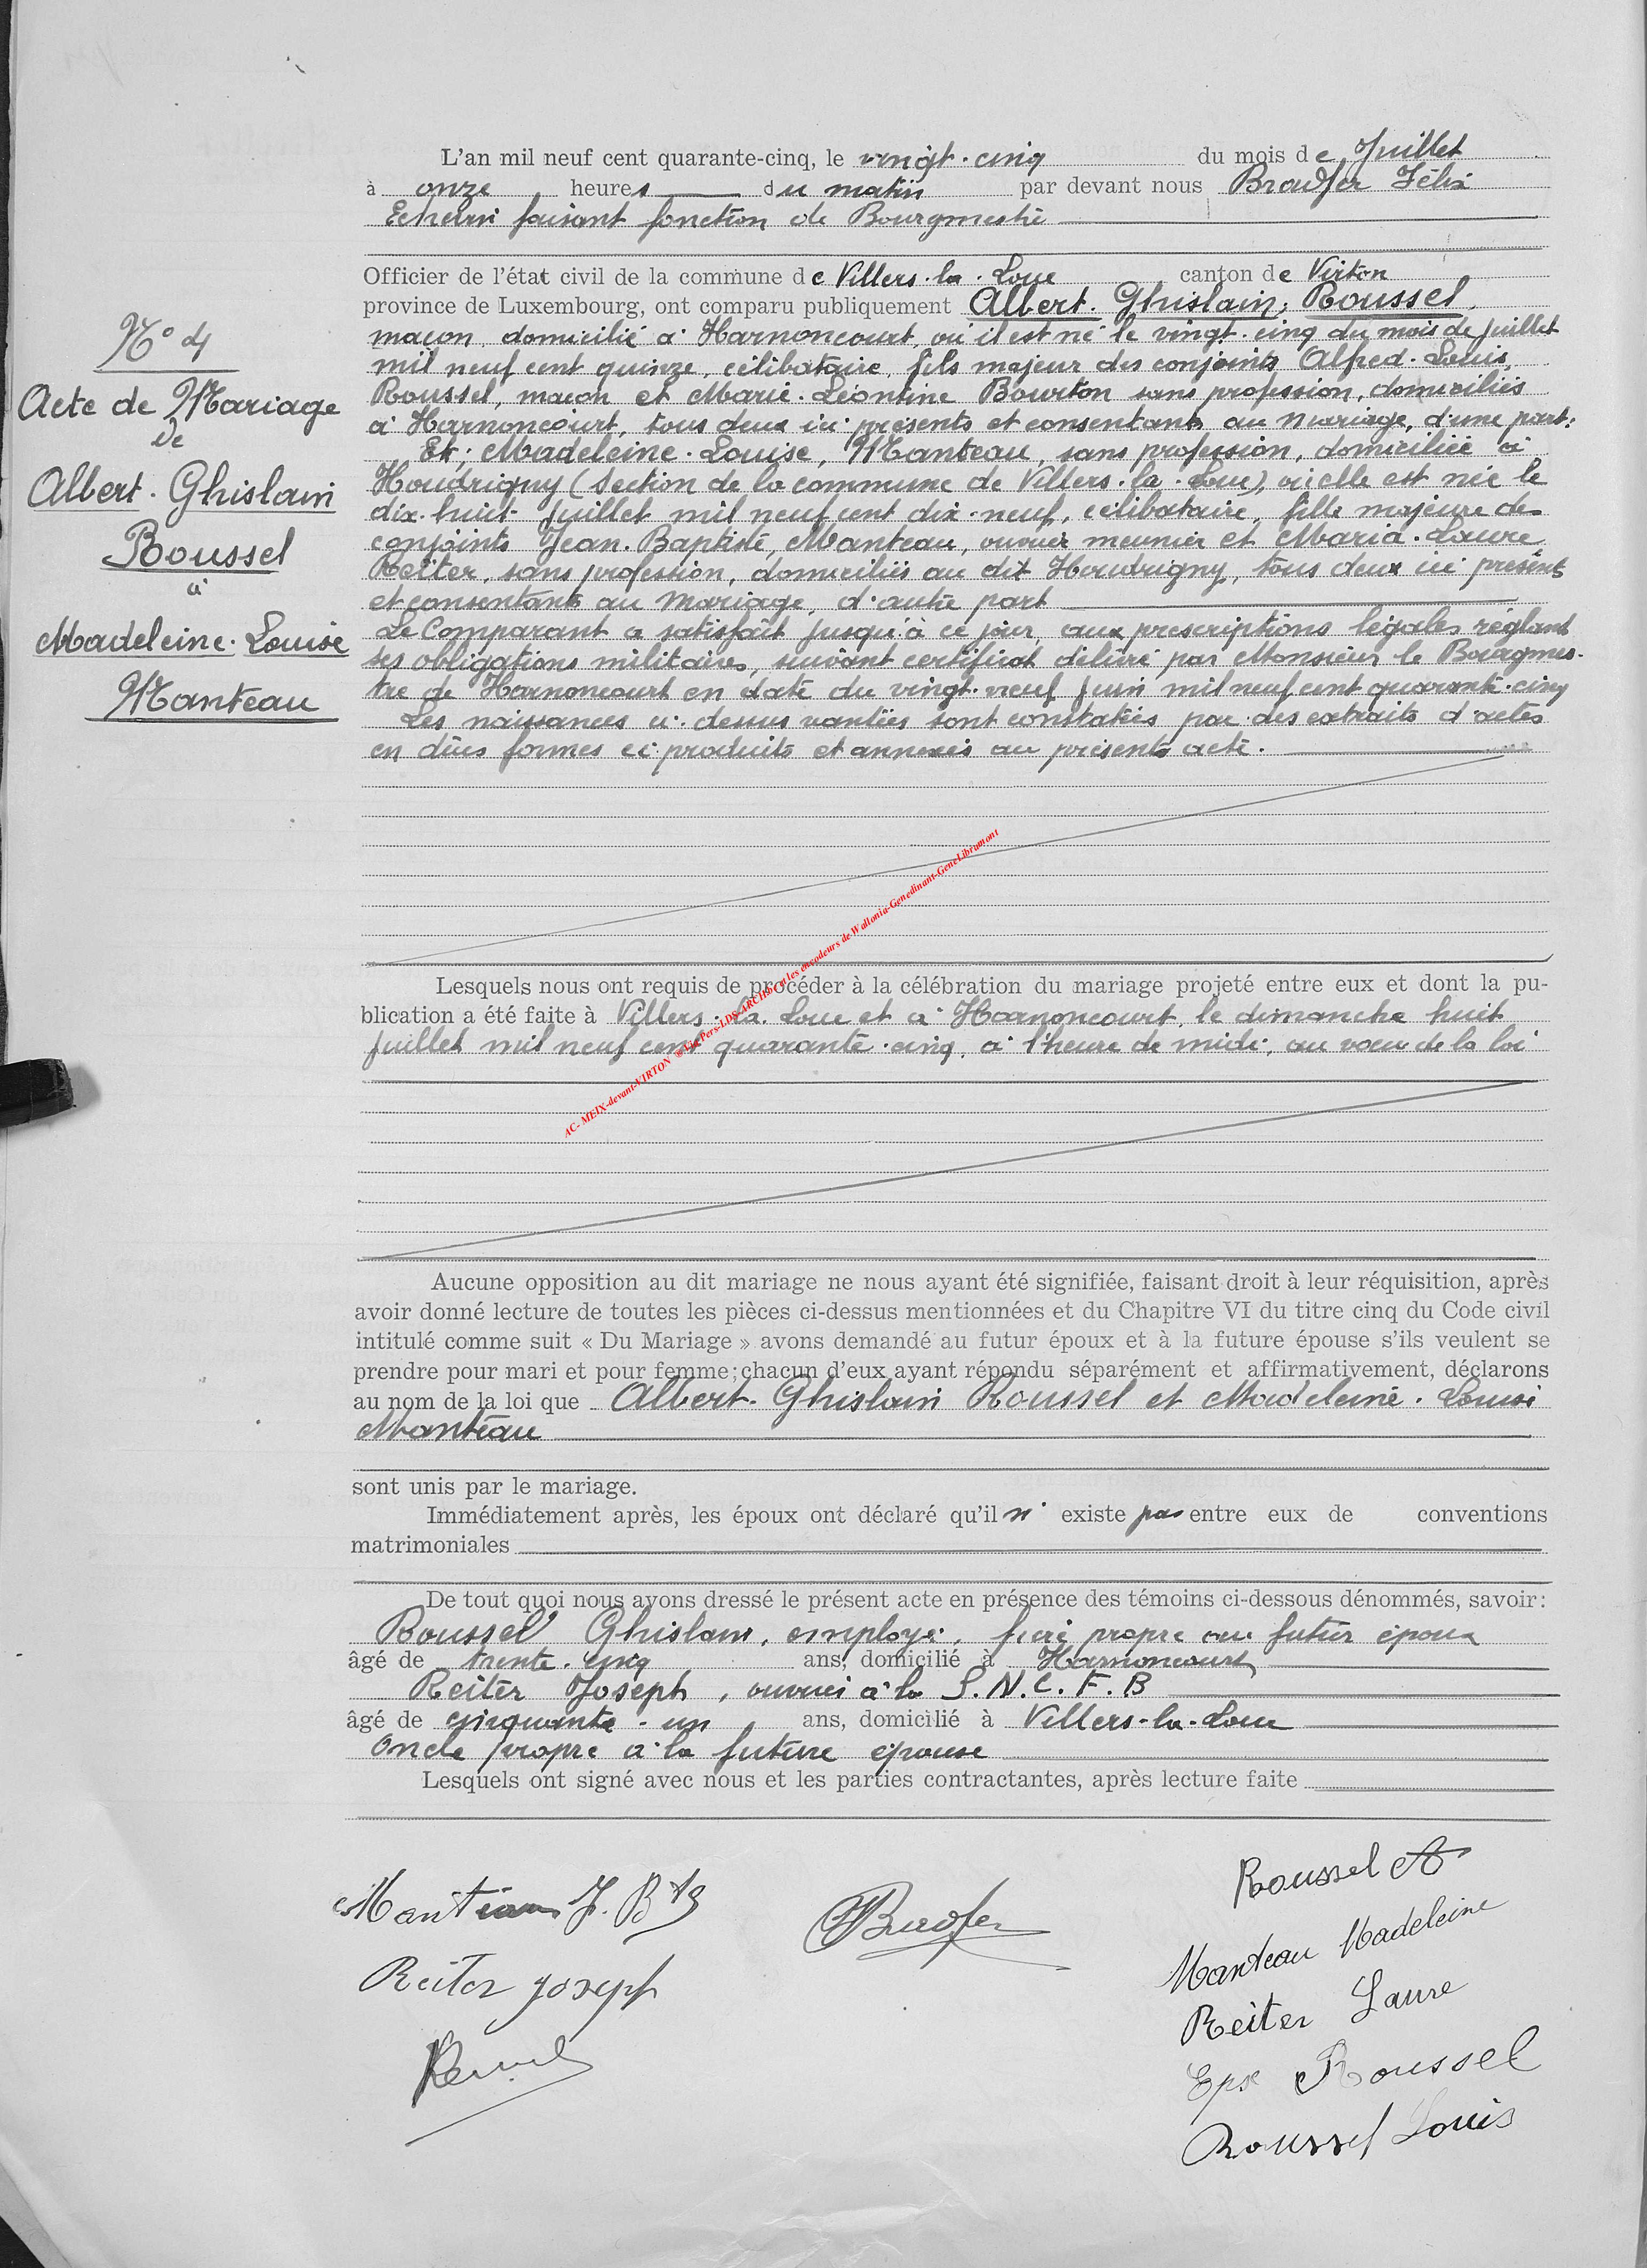 L'an mil neuf cent quarante-cinq, le vingt-cinq du mois de Juillet
à onze heures du matin par devant nous Bradfer Félix
Echevin faisant fonction de Bourgmestre
Officier de l'état civil de la commune de Villers-la-Loue canton de Virton
province de Luxembourg, ont comparu publiquement Albert-Ghislain, Roussel,
maçon, domicilié à Harnoncourt, où il est né le vingt-cinq du mois de juillet
mil neuf cent quinze, célibataire, fils majeur des conjoints Alfred-Louis,
Roussel, maçon et Marie-Léontine Bourton sans profession, domiciliés
à Harnoncourt, tous deux ici présents et consentants au mariage, d'une part;
Et; Madeleine-Louise, Manteau, sans profession, domiciliée à
Houdrigny (section de la commune de Villers-la-Loue), où elle est née le
dix-huit juillet mil neuf cent dix-neuf, célibataire, fille majeure des
conjoints Jean-Baptiste, Manteau, ouvrier meunier et Maria-Laure
Reiter, sans profession, domiciliés au dit Houdrigny, tous deux ici présents
et consentants au mariage, d'autre part
Le Comparant a satisfait jusqu'à ce jour, aux prescriptions légales réglant
ses obligations militaires, suivant certificat délivré par Monsieur le Bourgmes-
tre de Harnoncourt en date du vingt-neuf juin mil neuf cent quarante-cinq
Les naissances ci-dessus vantées sont constatées par des extraits d'actes
en dues formes ici produits et annexés au présents acte.
N° 4
Acte de Mariage
de
Albert-Ghislain
Roussel
à
Madeleine-Louise
Manteau
Lesquels nous ont requis de procéder à la célébration du mariage projeté entre eux et dont la pu-
blication a été faite à Villers-la-Loue et à Harnoncourt, le dimanche huit
juillet mil neuf cent quarante-cinq, à l'heure de midi, au voeu de la loi
AC- MEIX-devant-VIRTON © Via Pers-LDS-ARCHb-Cu les encodeurs de Wallonia-Genedinant-GeneLibramont
Aucune opposition au dit mariage ne nous ayant été signifiée, faisant droit à leur réquisition, après
avoir donné lecture de toutes les pièces ci-dessus mentionnées et du Chapitre VI du titre cinq du Code civil
intitulé comme suit « Du Mariage » avons demandé au futur époux et à la future épouse s'ils veulent se
prendre pour mari et pour femme; chacun d'eux ayant répondu séparément et affirmativement, déclarons
au nom de la loi que Albert-Ghislain Roussel et Madeleine-Louise
Manteau
sont unis par le mariage.
Immédiatement après, les époux ont déclaré qu'il n' existe pas entre eux de conventions
matrimoniales
De tout quoi nous avons dressé le présent acte en présence des témoins ci-dessous dénommés, savoir:
Roussel Ghislain, employé, frère propre au futur époux
âgé de trente-cinq ans, domicilié à Harnoncourt
Reiter Joseph, ouvrier à la S.N.C.F.B
âgé de cinquante-un ans, domicilié à Villers-la-Loue
Oncle propre à la future épouse
Lesquels ont signé avec nous et les parties contractantes, après lecture faite
Roussel A
Manteau J. Bte
Bradfer
Manteau Madeleine
Reiter Joseph
Reiter Laure
Epse Roussel
Roussel Louis